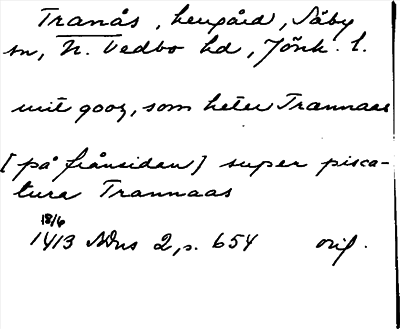 Tranås, herrgård, Säby
sn, N. Vedbo hd, Jönk. l.
mit gooz, som heter Trannaas
[på frånsidan] super pisca-
tura Trannaas
18/6
1413 NDns 2, s. 654 orig.